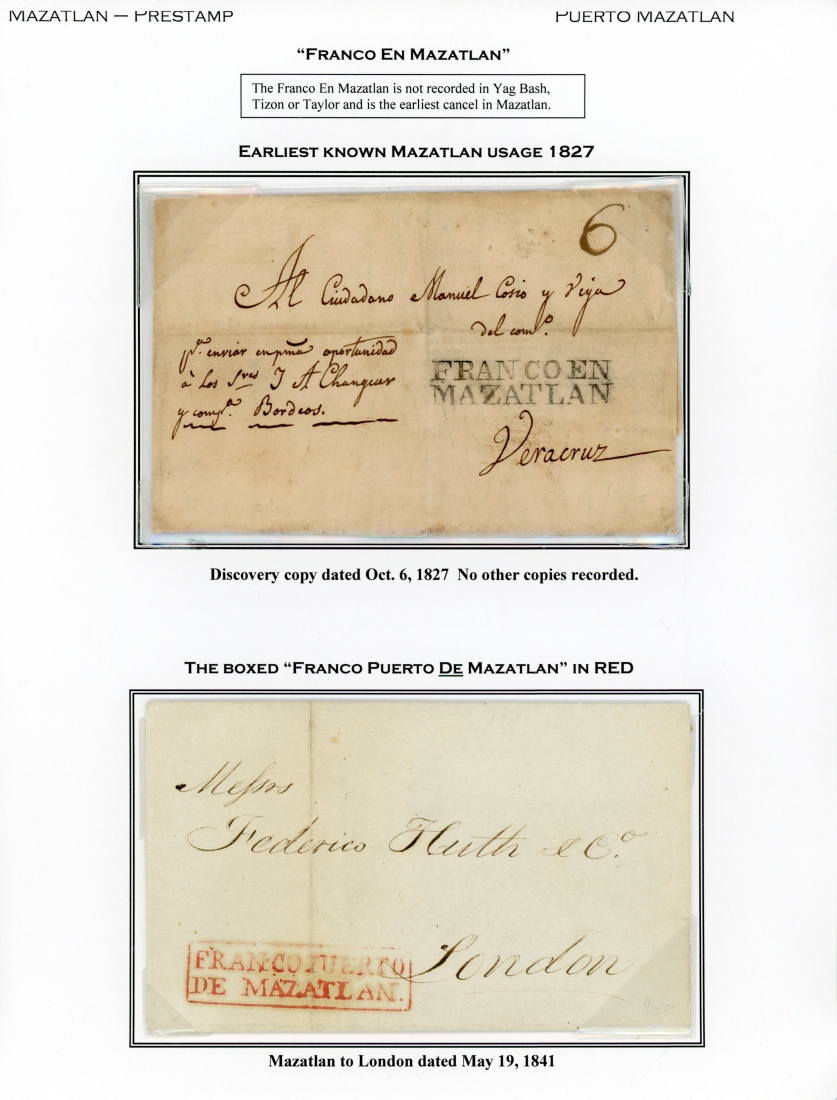 MAZATLAN — PRESTAMP
PUERTO MAZATLAN
“FRANCO EN MAZATLAN”
The Franco En Mazatlan is not recorded in Yag Bash,
Tizon or Taylor and is the earliest cancel in Mazatlan.
EARLIEST KNOWN MAZATLAN USAGE 1827
6
Al Ciudadano Manuel Cosio y Vega
del como.
pa. enviar en pma oportunidad
à los Sres J A Changeur
y compa. Bordeos.
FRANCO EN
MAZATLAN
Veracruz
Discovery copy dated Oct. 6, 1827 No other copies recorded.
THE BOXED “FRANCO PUERTO DE MAZATLAN” IN RED
Messrs
Federico Huth & Co.
FRANCO PUERTO
DE MAZATLAN.
London
Mazatlan to London dated May 19, 1841